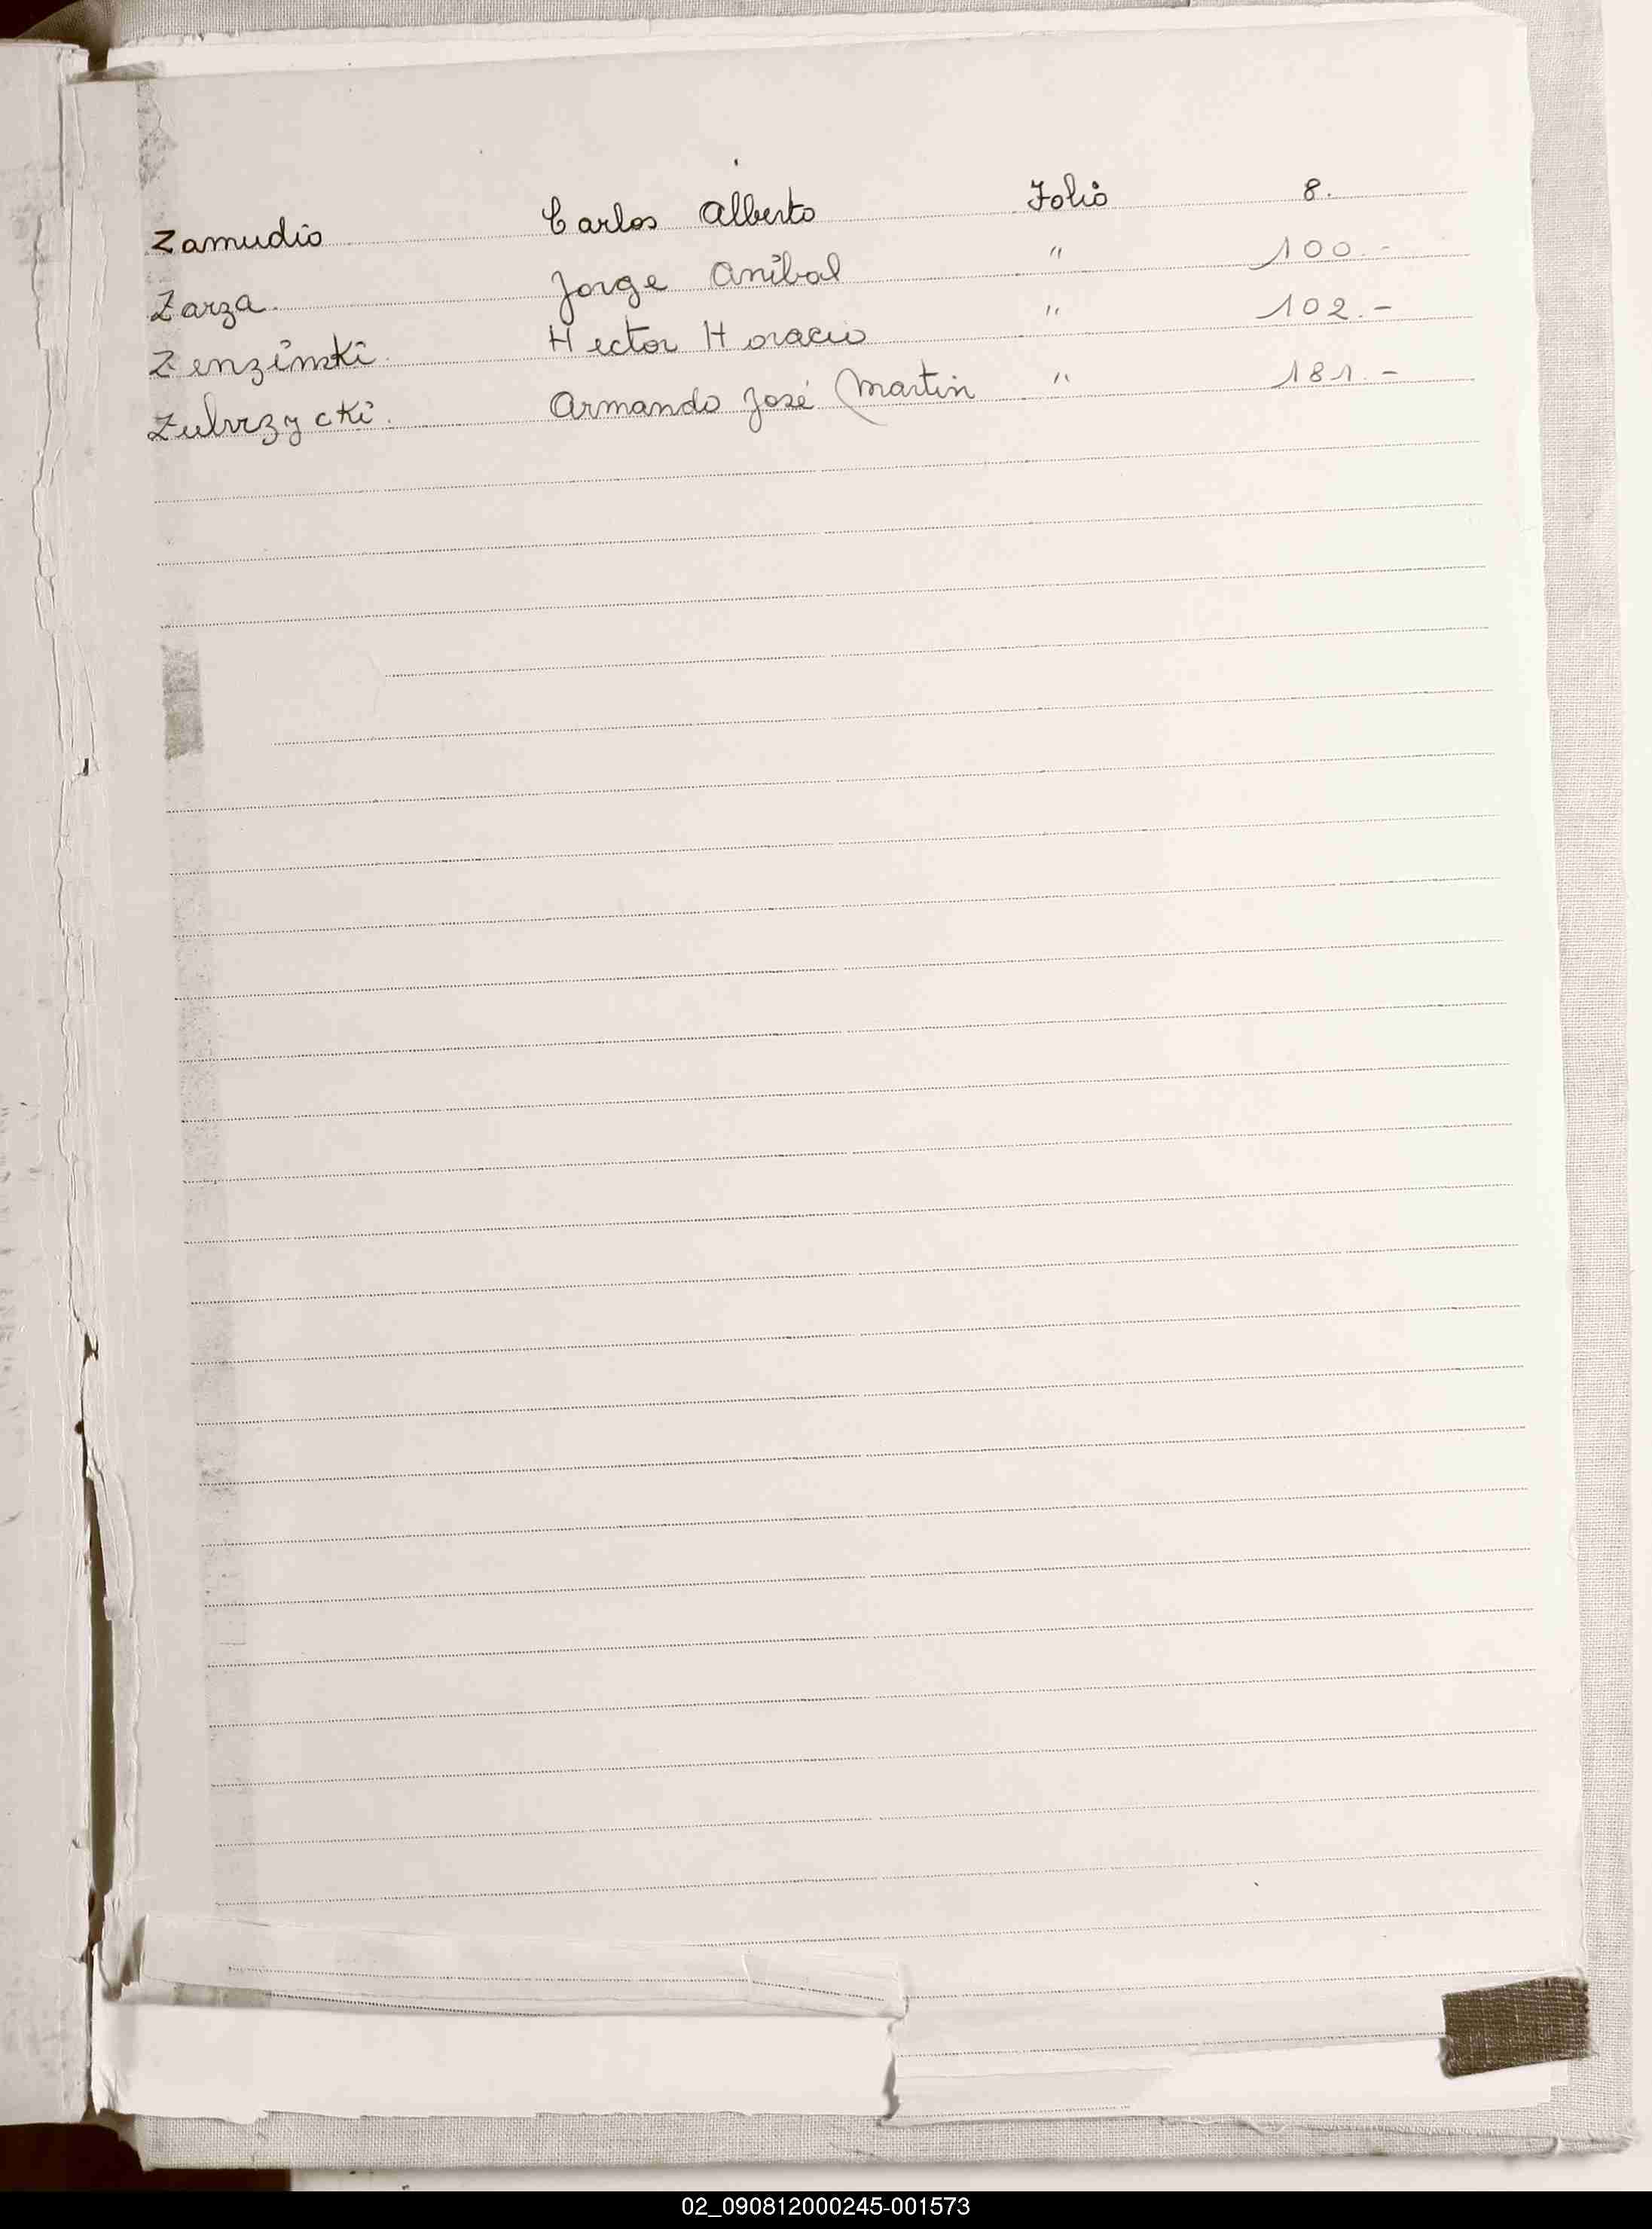 Zamudio Carlos Alberto Folio 8.
Zarza. Jorge Anibal " 100.-
Zenzinski. Hector Horacio " 102.-
Zubrzycki. Armando José Martin " 181.-
02_090812000245-001573